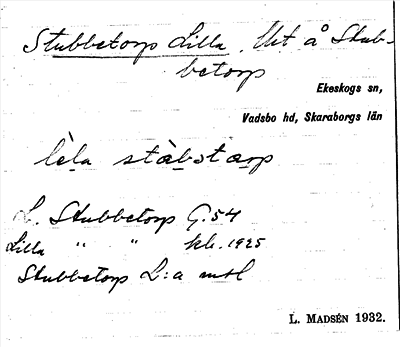 Stubbetorp Lilla. Ut å Stub-
betorp
Ekeskogs sn,
Vadsbo hd, Skaraborgs län
lèla stàbstarp
L. Stubbetorp G. 54
Lilla " " kb. 1925
Stubbetorp L:a mtl
L. MADSÉN 1932.